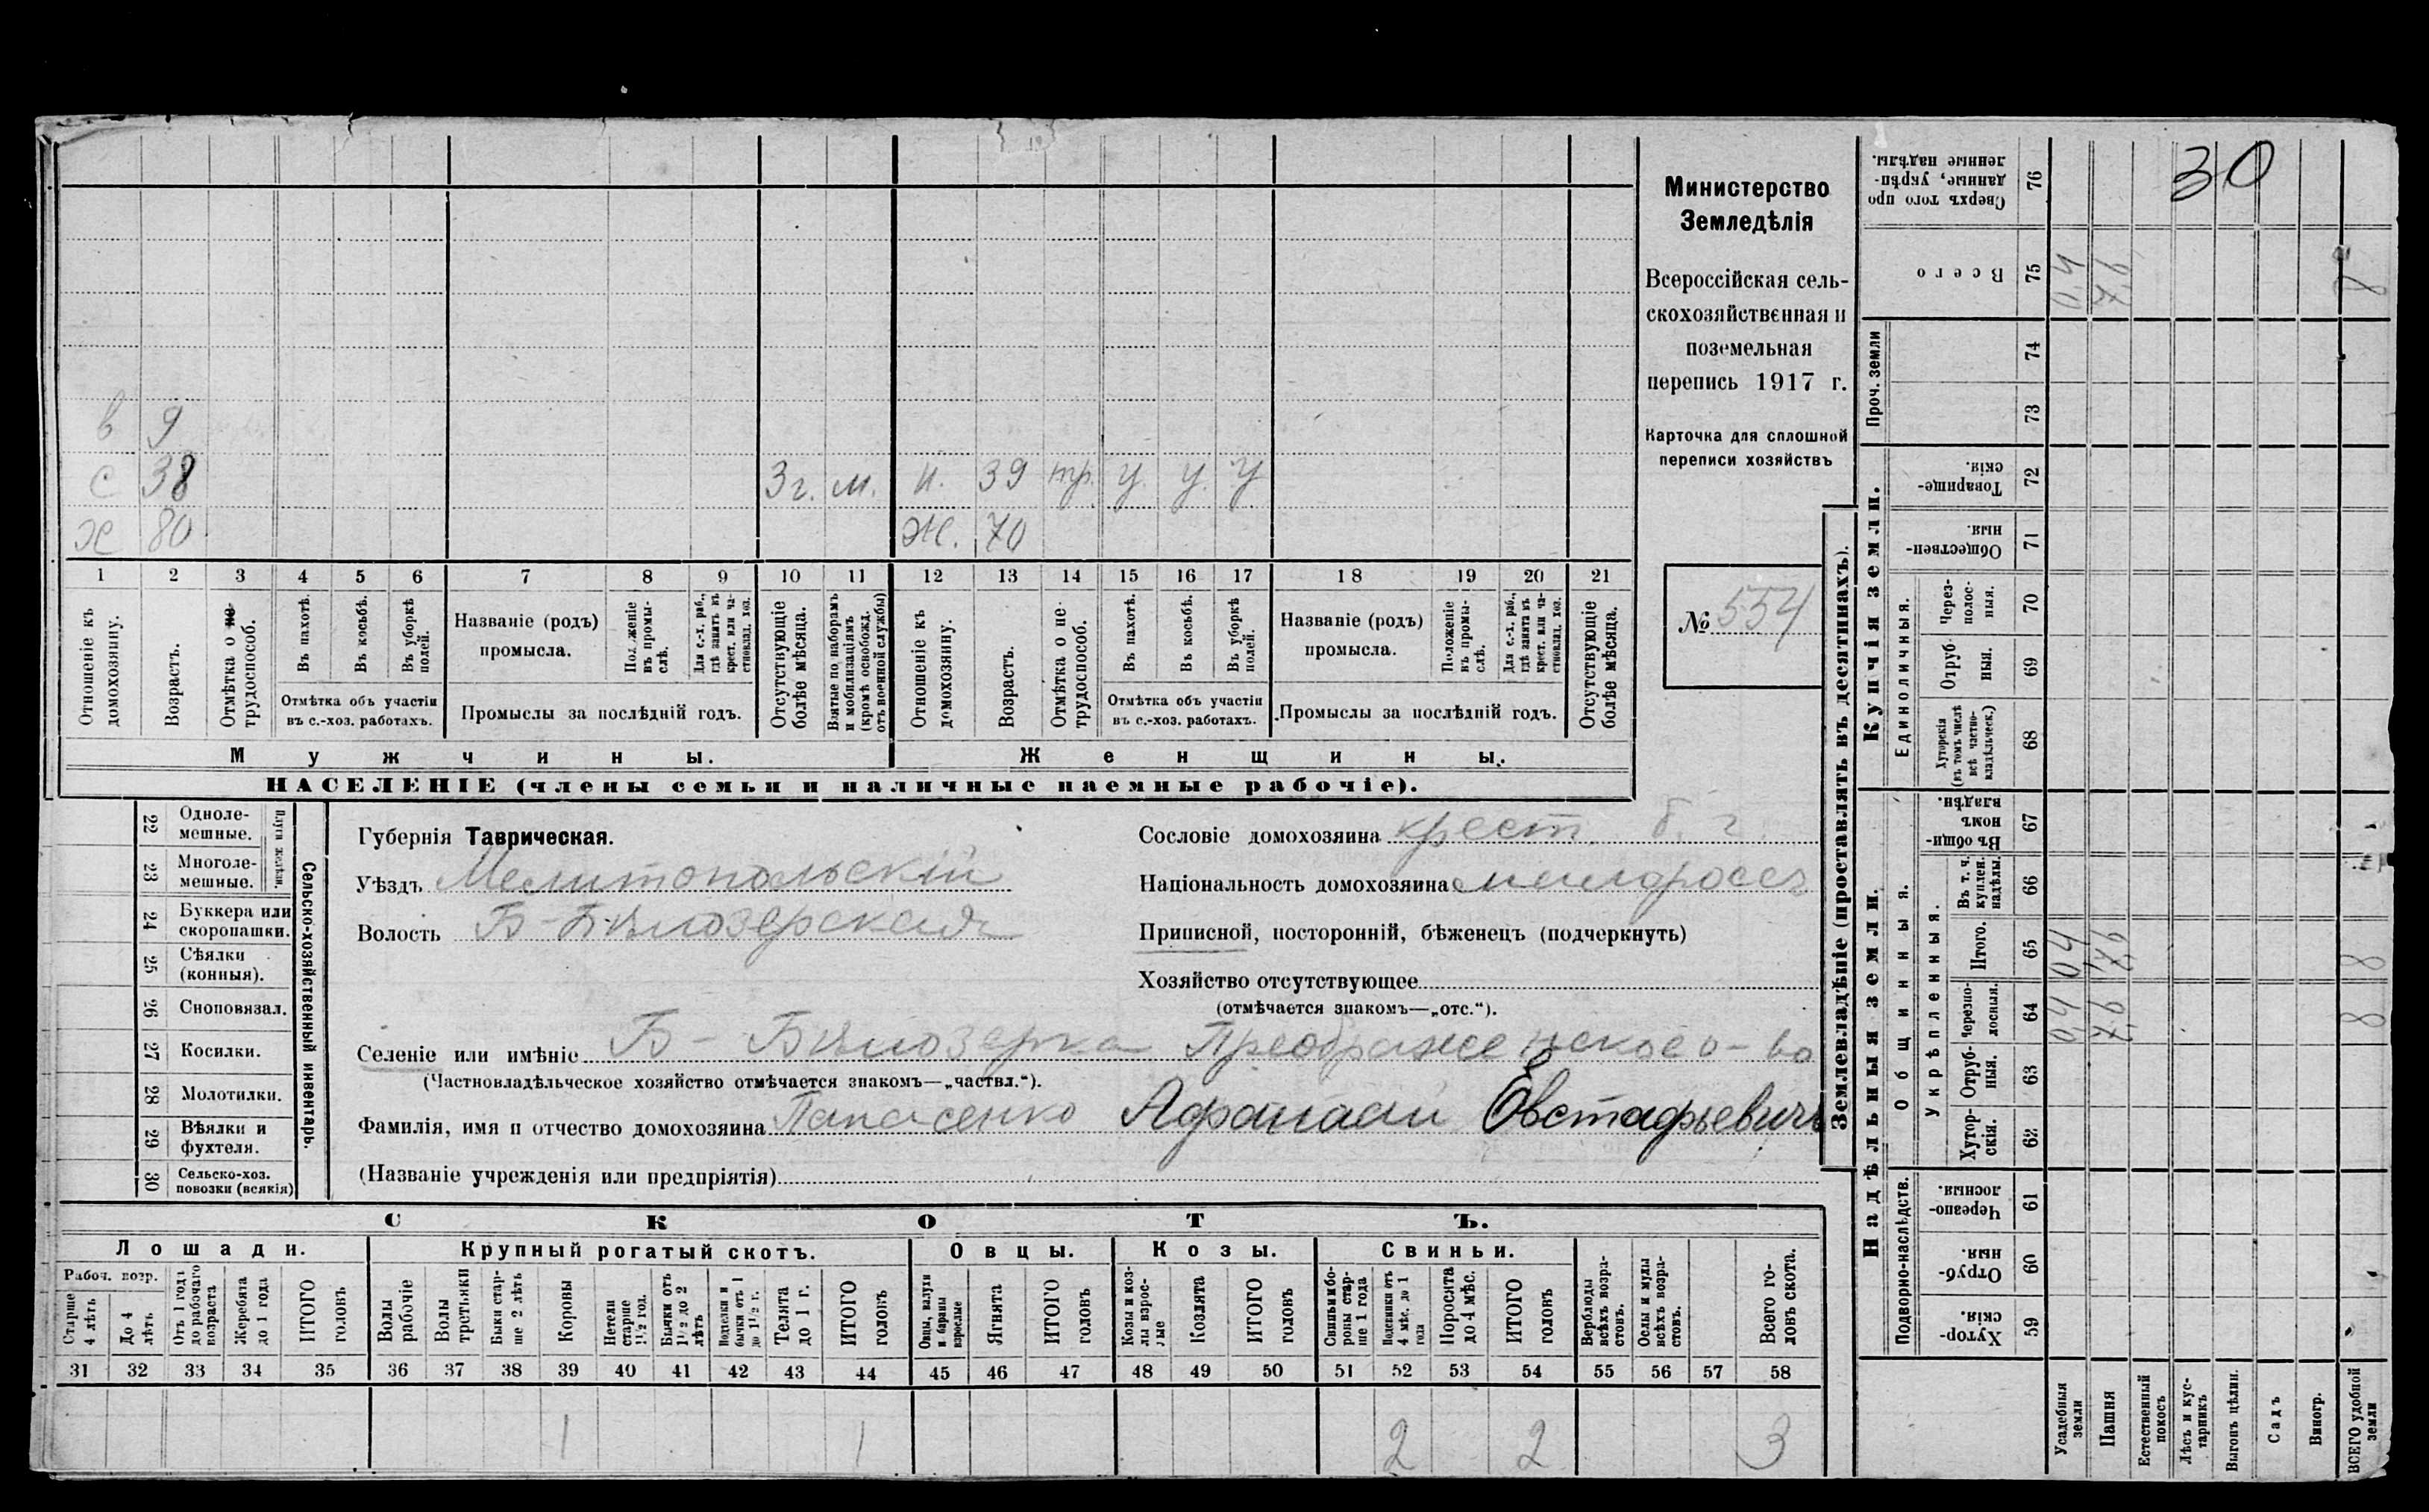 30
Министерство
Земледѣлія
Всероссійская сель-
скохозяйственная и
поземельная
перепись 1917 г.
Карточка для сплошной
переписи хозяйствъ
№ 554
в 9
с 38 3 г. м. н. 39 тр. у у. у
х 80 Ж. 70
1 2 3 4 5 6 7 8 9 10 11 12 13 14 15 16 17 18 19 20 21
Отношеніе къ домохозяину.
Возрастъ.
Отмѣтка о не-трудоспособ.
Въ пахотѣ.
Въ косьбѣ.
Въ уборкѣ полей.
Отмѣтка объ участіи въ с.-хоз. работахъ.
Названіе (родъ) промысла.
Положеніе въ промы-слѣ.
Для с.-х. раб., гдѣ занятъ въ крест. или ча-стновлад. хоз.
Промыслы за послѣдній годъ.
Отсутствующіе болѣе мѣсяца.
Взятые по наборамъ и мобилизаціямъ (кромѣ освобожд. отъ военной службы)
Отношеніе къ домохозяину.
Возрастъ.
Отмѣтка о не-трудоспособ.
Въ пахотѣ.
Въ косьбѣ.
Въ уборкѣ полей.
Отмѣтка объ участіи въ с.-хоз. работахъ.
Названіе (родъ) промысла.
Положеніе въ промы-слѣ.
Для с.-х. раб., гдѣ занята въ крест. или ча-стновлад. хоз.
Промыслы за послѣдній годъ.
Отсутствующіе болѣе мѣсяца.
Мужчины. Женщины.
НАСЕЛЕНІЕ (члены семьи и наличные наемные рабочіе).
Сельско-хозяйственный инвентарь.
Плуги желѣзн.
22 Одноле-мешные.
23 Многоле-мешные.
24 Буккера или скоропашки.
25 Сѣялки (конныя).
26 Сноповязал.
27 Косилки.
28 Молотилки.
29 Вѣялки и фухтеля.
30 Сельско-хоз. повозки (всякія)
Губернія Таврическая.
Уѣздъ Мелитопольскій
Волость Б-Бѣлозерская
Сословіе домохозяина крест. б. г.
Національность домохозяина малоросс
Приписной, посторонній, бѣженецъ (подчеркнуть)
Хозяйство отсутствующее
(отмѣчается знакомъ—„отс.“).
Селеніе или имѣніе Б-Бѣлозерка Преображенское о-во
(Частновладѣльческое хозяйство отмѣчается знакомъ—„частвл.“).
Фамилія, имя и отчество домохозяина Панасенко Афанасій Евстафьевичъ
(Названіе учрежденія или предпріятія)
СКОТЪ.
Лошади. Крупный рогатый скотъ. Овцы. Козы. Свиньи.
Рабоч. возр.
Старше 4 лѣтъ
До 4 лѣтъ
Отъ 1 года до рабочаго возраста
Жеребята до 1 года
ИТОГО головъ
Волы рабочіе
Волы третьяки
Быки стар-ше 2 лѣтъ
Коровы
Нетели старше 1 1/2 год.
Бычки отъ 1 1/2 до 2 лѣтъ
Подтелки и бычки отъ 1 до 1 1/2 г.
Телята до 1 г.
ИТОГО головъ
Овцы, валухи и бараны взрослые
Ягнята
ИТОГО головъ
Козы и коз-лы взрос-лые
Козлята
ИТОГО головъ
Свиньи и бо-ровы стар-ше 1 года
Подсвинки отъ 4 мѣс. до 1 года
Поросята до 4 мѣс.
ИТОГО головъ
Верблюды всѣхъ возра-стовъ.
Ослы и мулы всѣхъ возра-стовъ.
Всего го-ловъ скота.
31 32 33 34 35 36 37 38 39 40 41 42 43 44 45 46 47 48 49 50 51 52 53 54 55 56 57 58
1 1 2 2 3
Землевладѣніе (проставлять въ десятинахъ).
Надѣльныя земли. Купчія земли. Проч. земли
Подворно-наслѣдств. Общинныя. Укрѣпленныя. Единоличныя.
59 Хутор-скія.
60 Отруб-ныя.
61 Черезпо-лосныя.
62 Хутор-скія.
63 Отруб-ныя.
64 Черезпо-лосныя.
65 Итого.
66 Въ т. ч. куплен. надѣлы.
67 Въ общин-номъ владѣн.
68 Хуторскія (въ томъ числѣ всѣ частно-владѣльческ.)
69 Отруб-ныя.
70 Через-полос-ныя.
71 Обществен-ныя.
72 Товарище-скія.
73
74
75 Всего
76 Сверхъ того про-данные, укрѣп-ленные надѣлы.
Усадебныя земли
Пашня
Естественный покосъ
Лѣсъ и кус-тарникъ
Выгонъ цѣлин.
Садъ
Виногр.
ВСЕГО удобной земли